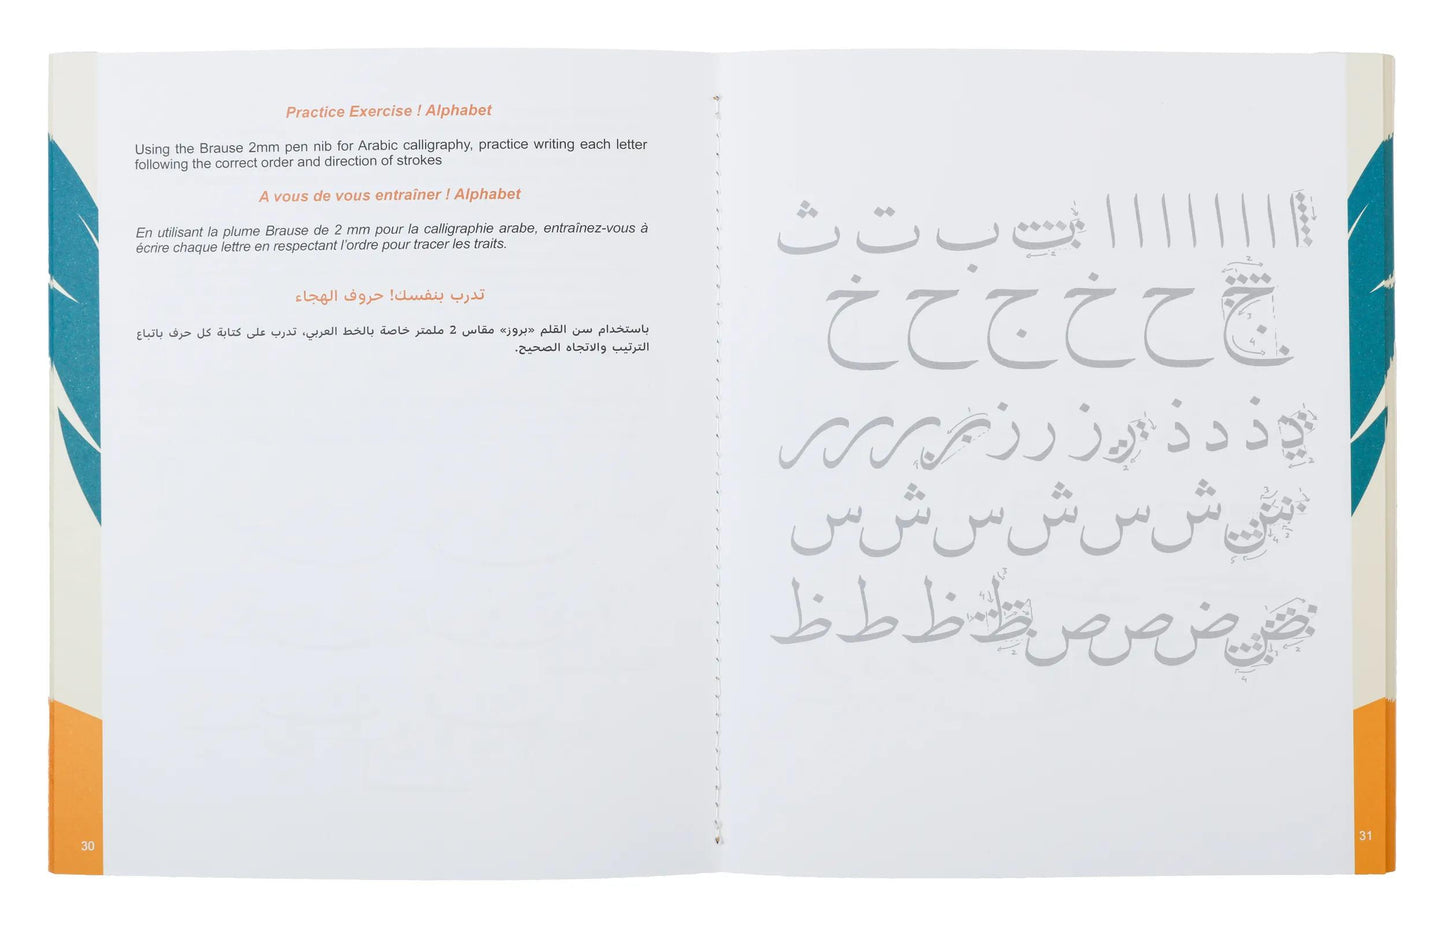 Practice Exercise ! Alphabet
Using the Brause 2mm pen nib for Arabic calligraphy, practice writing each letter
following the correct order and direction of strokes
A vous de vous entraîner ! Alphabet
En utilisant la plume Brause de 2 mm pour la calligraphie arabe, entraînez-vous à
écrire chaque lettre en respectant l’ordre pour tracer les traits.
تدرب بنفسك! حروف الهجاء
باستخدام سن القلم «بروز» مقاس 2 ملمتر خاصة بالخط العربي، تدرب على كتابة كل حرف باتباع
الترتيب والاتجاه الصحيح.
30
ا ا ا ا ا ا ا ا ت ب ت ث
خ ح خ ج ح خ
ذ ذ د ذ ز ز ر ز ز ر ر ر
ش ش س ش س ش س
ض ض ص ص ظ ظ ط ظ
31